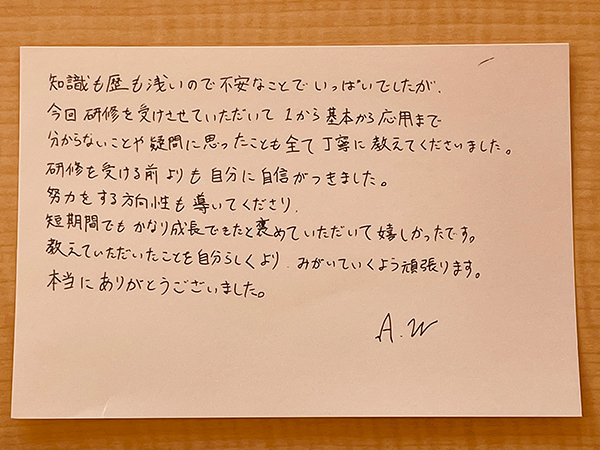 知識も歴も浅いので不安なことでいっぱいでしたが、
今回研修を受けさせていただいて1から基本から応用まで
分からないことや疑問に思ったことも全て丁寧に教えてくださいました。
研修を受ける前よりも自分に自信がつきました。
努力をする方向性も導いてくださり、
短期間でもかなり成長できたと褒めていただいて嬉しかったです。
教えていただいたことを自分らしくより、みがいていくよう頑張ります。
本当にありがとうございました。
A.W